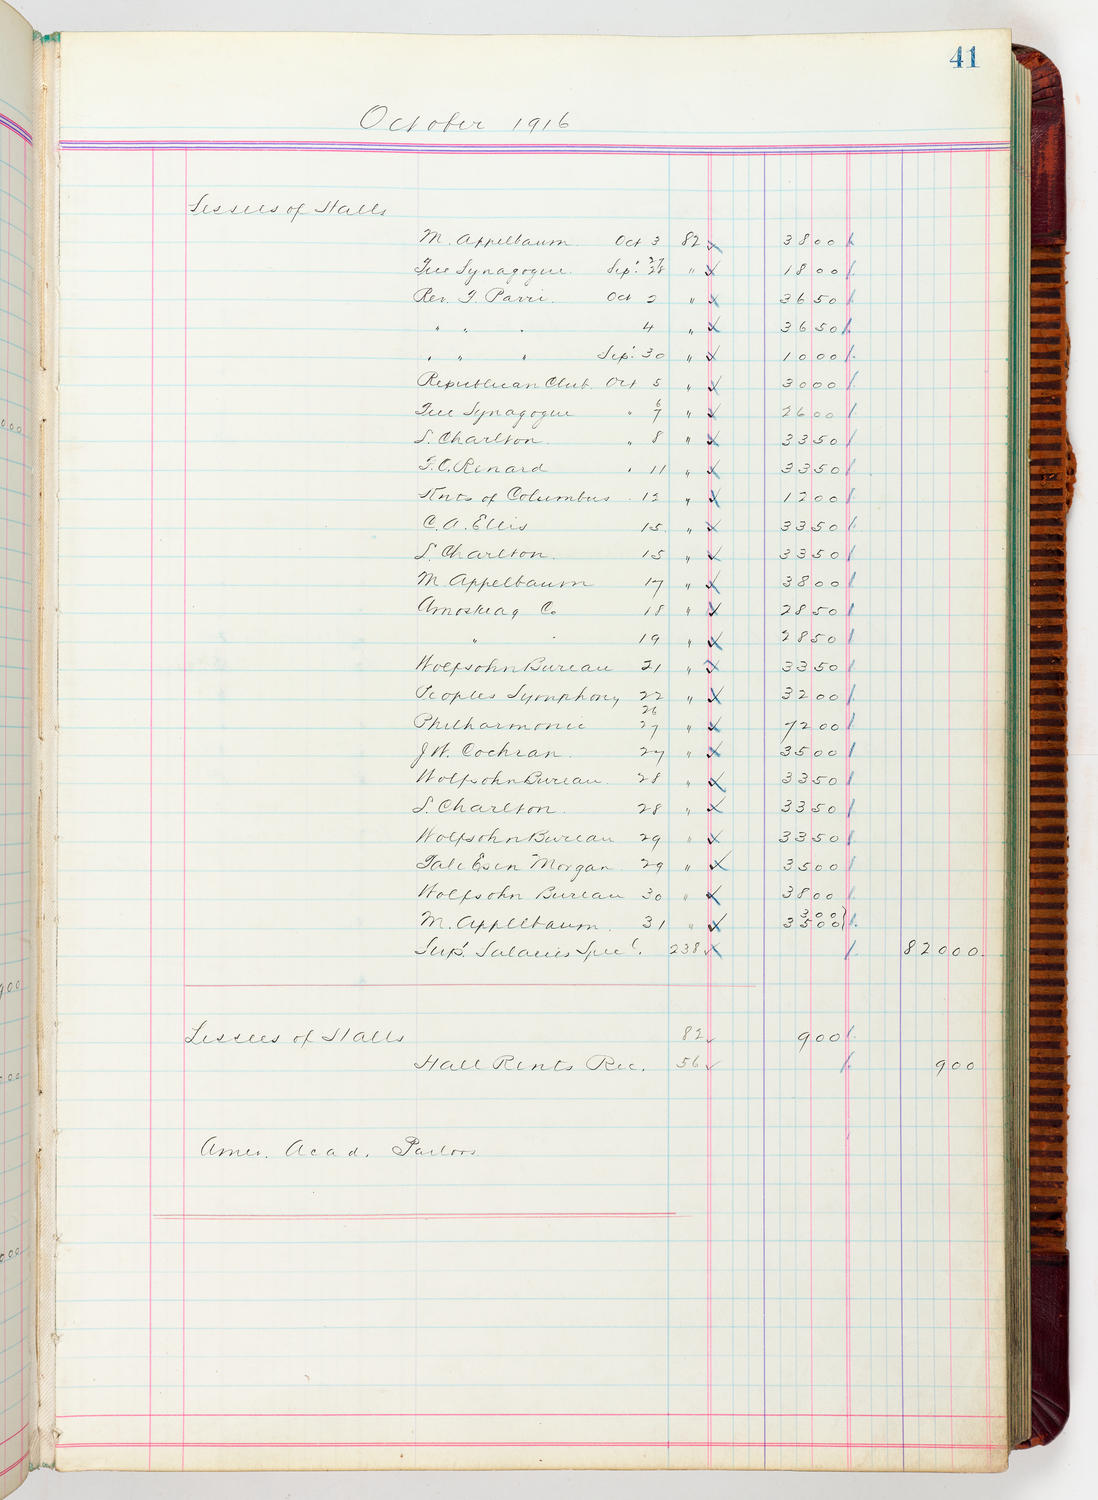 41
October 1916
Lessees of Halls
M. Appelbaum Oct 3 82 3800
Free Synagogue. Sep. 27 28 " 1800
Rev. F. Parri. Oct 2 " 3650
" " " 4 " 3650
" " " Sep. 30 " 1000
Republican Club. Oct 5 " 3000
Free Synagogue " 6 7 " 2600
S. Charlton. " 8 " 3350
F. C. Renard " 11 " 3350
Knts of Columbus . 12 " 1200
C. A. Ellis 15. " 3350
S. Charlton. 15 " 3350
M. Appelbaum 17 " 3800
Amoskeag Co 18 " 2850
" " 19 " 2850
Wolfsohn Bureau 21 " 3350
Peoples Symphony 22 " 3200
Philharmonic 26 27 " 7200
J. W. Cochran. 27 " 3500
Wolfsohn Bureau. 28 " 3350
S. Charlton. 28 " 3350
Wolfsohn Bureau 29 " 3350
Tali Esen Morgan. 29 " 3500
Wolfsohn Bureau 30 " 3800
M. Appelbaum. 31 " 300 3500
Supt. Salaries Specl. 238 82000.
Lessees of Halls 82 900
Hall Rents Rec. 56 900
Amer. Acad. Parlors